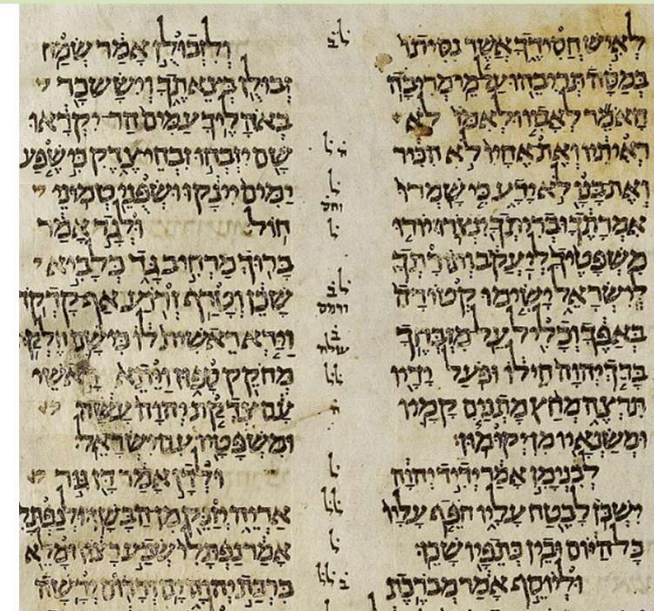 לְאִישׁ חֲסִידֶךָ אֲשֶׁר נִסִּיתוֹ
בְּמַסָּה תְּרִיבֵהוּ עַל־מֵי מְרִיבָה
הָאֹמֵר לְאָבִיו וּלְאִמּוֹ לֹא
רְאִיתִיו וְאֶת־אֶחָיו לֹא הִכִּיר
וְאֶת־בָּנָו לֹא יָדָע כִּי שָׁמְרוּ
אִמְרָתֶךָ וּבְרִיתְךָ יִנְצֹרוּ יוֹרוּ
מִשְׁפָּטֶיךָ לְיַעֲקֹב וְתוֹרָתְךָ
לְיִשְׂרָאֵל יָשִׂימוּ קְטוֹרָה
בְּאַפֶּךָ וְכָלִיל עַל־מִזְבְּחֶךָ
בָּרֵךְ יְהוָה חֵילוֹ וּפֹעַל יָדָיו
תִּרְצֶה מְחַץ מָתְנַיִם קָמָיו
וּמְשַׂנְאָיו מִן־יְקוּמוּן׃
לְבִנְיָמִן אָמַר יְדִיד יְהוָה
יִשְׁכֹּן לָבֶטַח עָלָיו חֹפֵף עָלָיו
כָּל־הַיּוֹם וּבֵין כְּתֵפָיו שָׁכֵן׃
וּלְיוֹסֵף אָמַר מְבֹרֶכֶת
וְלִזְבוּלֻן אָמַר שְׂמַח
זְבוּלֻן בְּצֵאתֶךָ וְיִשָּׂשכָר
בְּאֹהָלֶיךָ עַמִּים הַר־יִקְרָאוּ
שָׁם יִזְבְּחוּ זִבְחֵי־צֶדֶק כִּי שֶׁפַע
יַמִּים יִינָקוּ וּשְׂפֻנֵי טְמוּנֵי
חוֹל וּלְגָד אָמַר
בָּרוּךְ מַרְחִיב גָּד כְּלָבִיא
שָׁכֵן וְטָרַף זְרוֹעַ אַף־קָדְקֹד
וַיַּרְא רֵאשִׁית לוֹ כִּי־שָׁם חֶלְקַת
מְחֹקֵק סָפוּן וַיֵּתֵא רָאשֵׁי
עָם צִדְקַת יְהוָה עָשָׂה
וּמִשְׁפָּטָיו עִם־יִשְׂרָאֵל׃
וּלְדָן אָמַר דָּן גּוּר
אַרְיֵה יְזַנֵּק מִן־הַבָּשָׁן׃ וּלְנַפְתָּלִי
אָמַר נַפְתָּלִי שְׂבַע רָצוֹן וּמָלֵא
בִּרְכַּת יְהוָה יָם וְדָרוֹם יְרָשָׁה׃